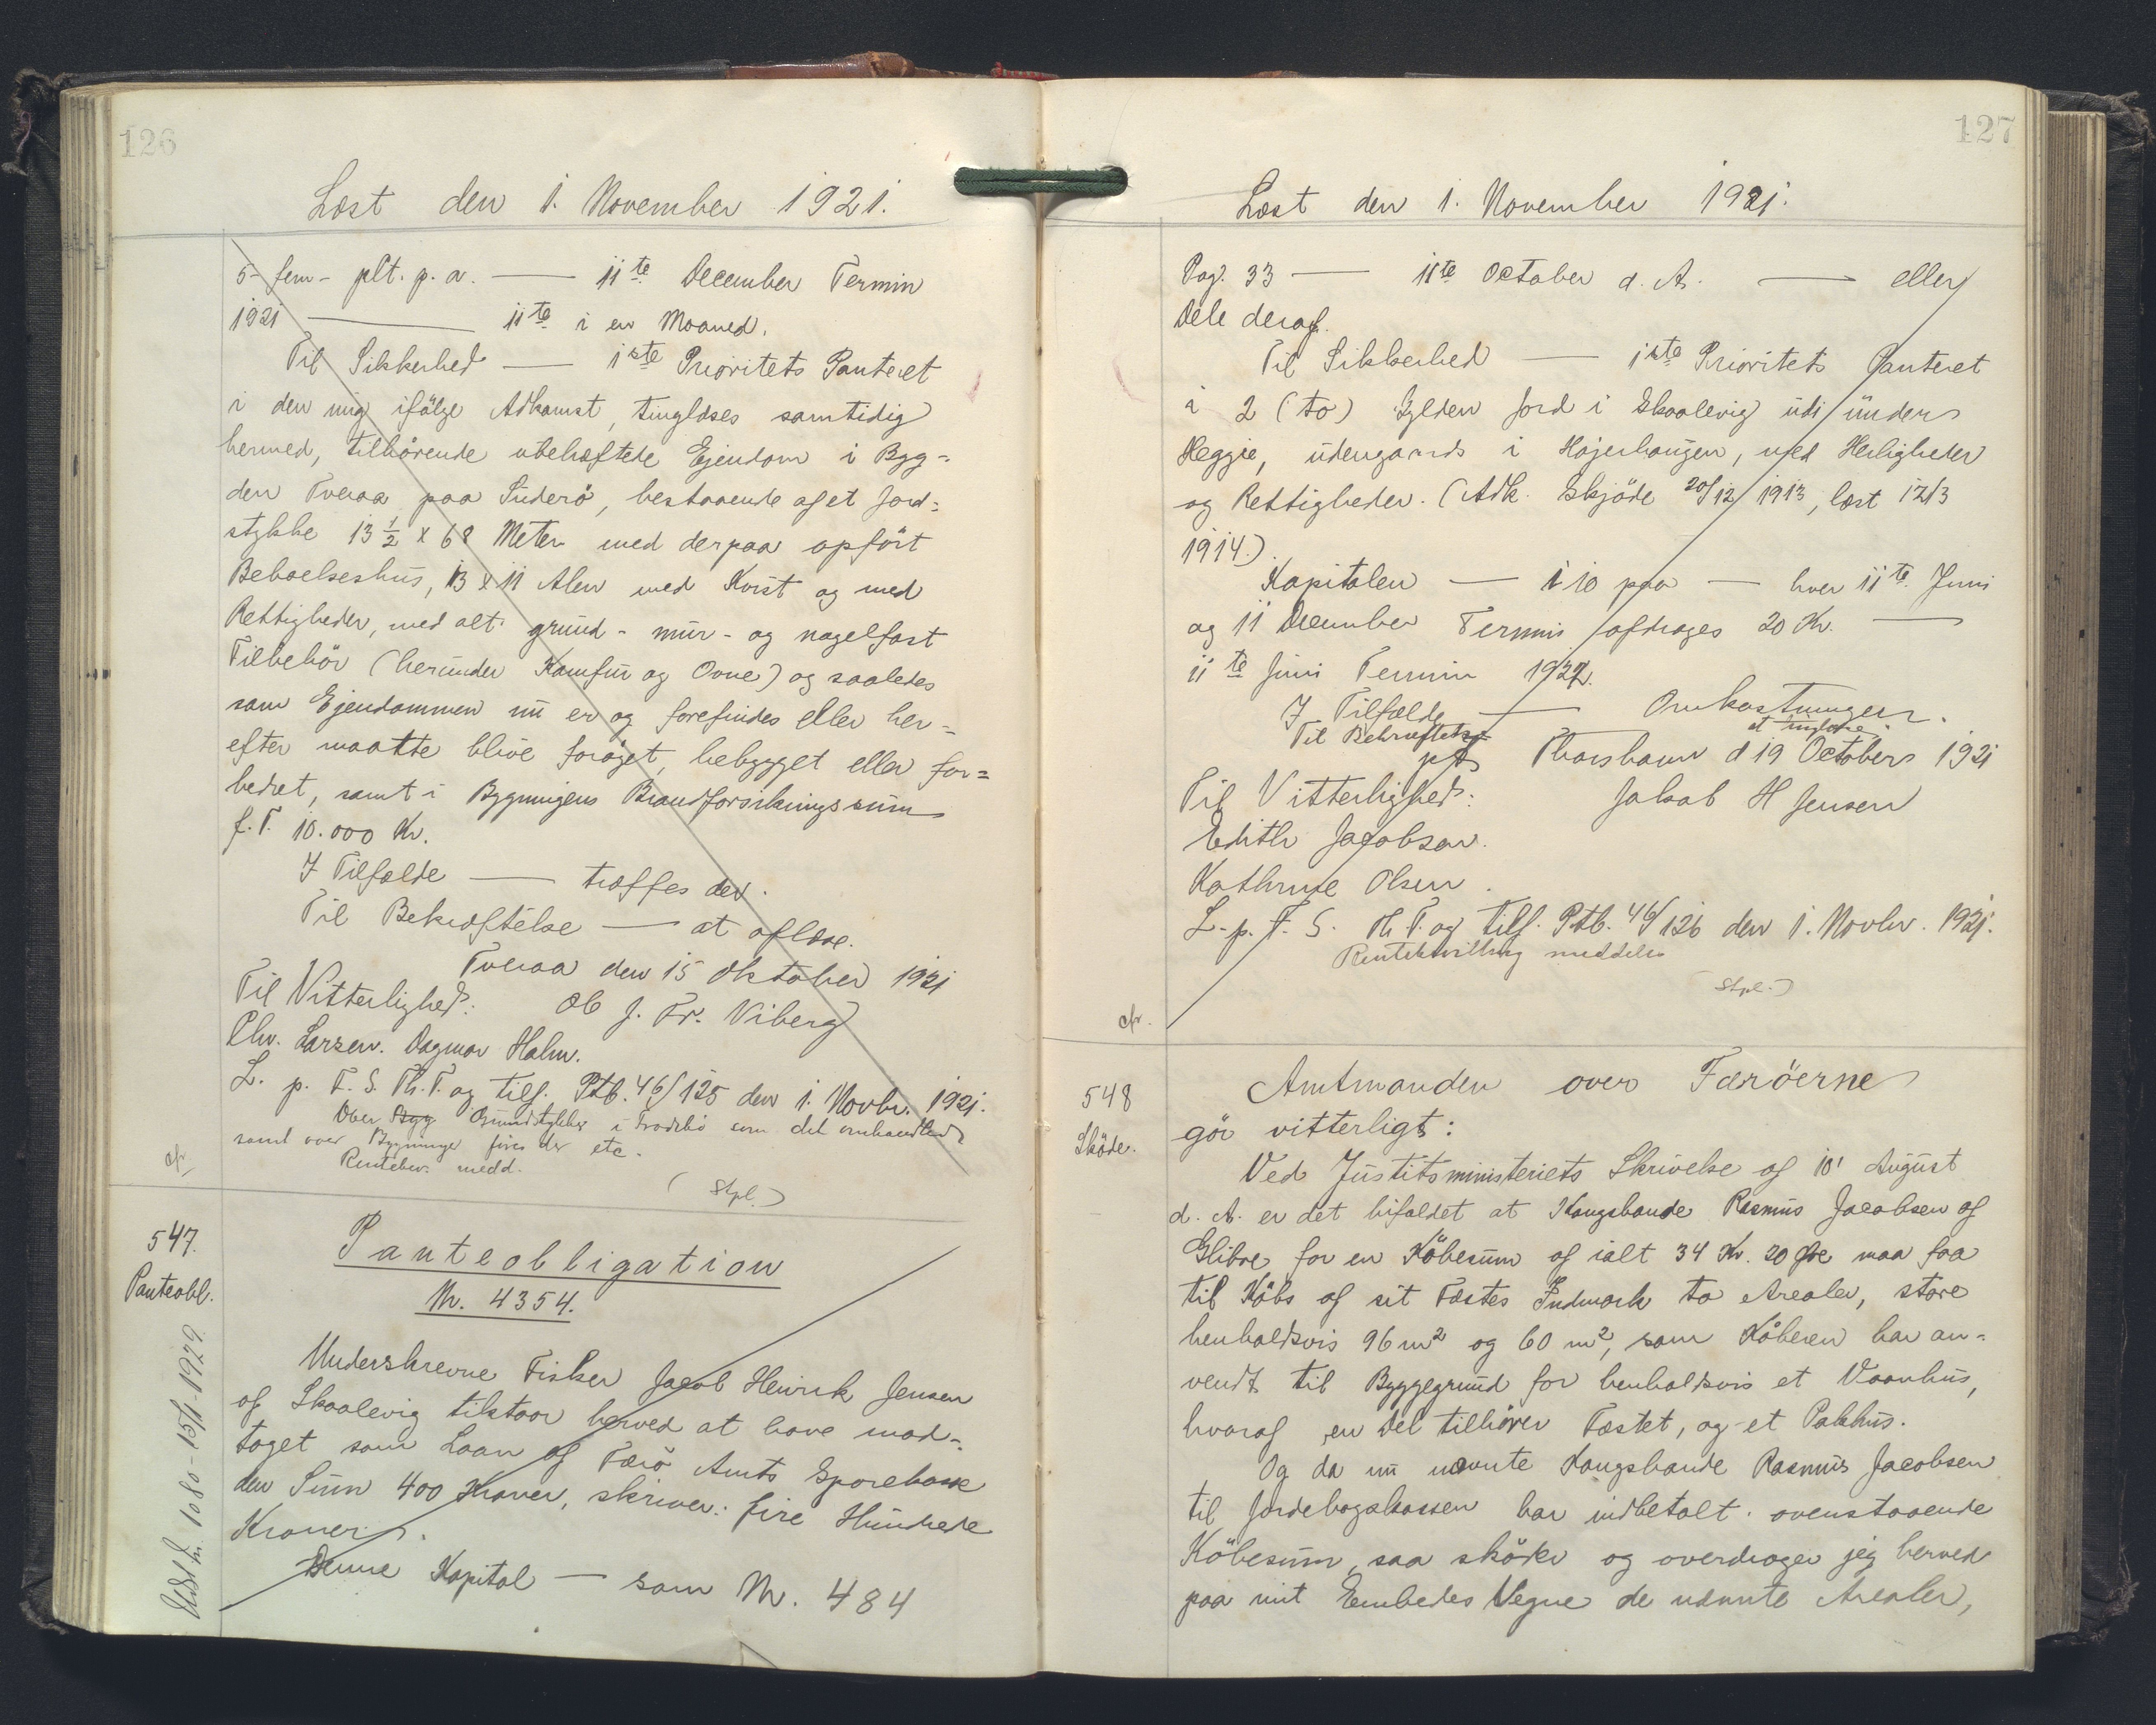 126
Læst den 1. November 1921.
5- fem- pCt. p. a. — 11te December Termin
1921 — 11te i en Maaned.
Til Sikkerhed — 1ste Prioritets Panteret
i den mig ifölge Adkomst, tinglæses samtidig
hermed, tilhörende ubehæftede Ejendom i Byg=
den Tveraa paa Suderö, bestaaende af et Jord=
stykke 13 1/2 x 68 Meter med derpaa opfört
Beboelseshus, 13 x 11 Alen med Kvist og med
Rettigheder, med alt grund- mur- og nagelfast
Tilbehör (herunder Komfur og Ovne) og saaledes
som Ejendommen nu er og forefindes eller her=
efter maatte blive foröget, bebygget eller for=
bedret, samt i Bygningens Brandforsikringssum
f. T. 10.000 Kr.
I Tilfælde — træffes der.
Til Bekræftelse — at aflæse.
Tveraa den 15 Oktober 1921
Til Vitterlighed: Ob J. Fr. Viberg
Chr. Larsen. Dagmar Holm.
L. p. F. S. Th. T. og tilf. Ptb. 46/125 den 1. Novbr. 1921.
Over Bygg Grundstykker i Trodebö som det omhandlede
samt over Bygninger fires der etc.
Rentebev. medd.
(Stpl.)
cfr.
547.
Panteobl.
Udsl. hr. 1080 - 15/1-1929
Panteobligation
Nr. 4354.
Underskrevne Fisker Jacob Heinrik Jensen
af Skaalevig tilstaar herved at have mod=
taget som Laan af Færö Amts Sparekasse
den Sum 400 Kroner, skriver: fire Hundrede
Kroner.
Denne Kapital — som Nr. 484
127
Læst den 1. November 1921.
Pag. 33 — 11te October d. A. — eller
Dele deraf.
Til Sikkerhed — 1ste Prioritets Panteret
i 2 (to) Gylden Jord i Skaalevig udi under
Heggie, udengaards i Höjerhaugen, med Herligheder
og Rettigheder. (Adk. Skjöde 20/12 1913, læst 12/3
1914.)
Kapitalen — i 10 paa — hver 11te Juni
og 11 December Termin afdrages 20 Kr. —
11te Juni Termin 1922.
I Tilfælde — Omkostninger.
Til Bekræftelse — at tinglæse.
pt Thorshavn d 19 October 1921
Til Vitterlighed: Jakob H Jensen
Edith Jacobsen.
Kathrine Olsen.
L. p. F. S. Th. T. og tilf. Ptb. 46/126 den 1. Novbr. 1921.
Rentebevilling meddeles
(Stpl.)
cfr.
548
Sköde.
Amtmanden over Færöerne
gör vitterligt:
Ved Justitsministeriets Skrivelse af 10' August
d. A. er det bifaldet at Kongsbonde Rasmus Jacobsen af
Glibre for en Köbesum af ialt 34 Kr. 20 Öre maa faa
til Köbs af sit Fæstes Indmark to Arealer, store
henholdsvis 96 m² og 60 m², som Köberen har an=
vendt til Byggegrund for henholdsvis et Vaanhus,
hvoraf en Del tilhörer Fæstet, og et Pakhus.
Og da nu nævnte Kongsbonde Rasmus Jacobsen
til Jordebogskassen har indbetalt ovenstaaende
Köbesum, saa sköder og overdrager jeg herved
paa mit Embedes Vegne de nævnte Arealer,